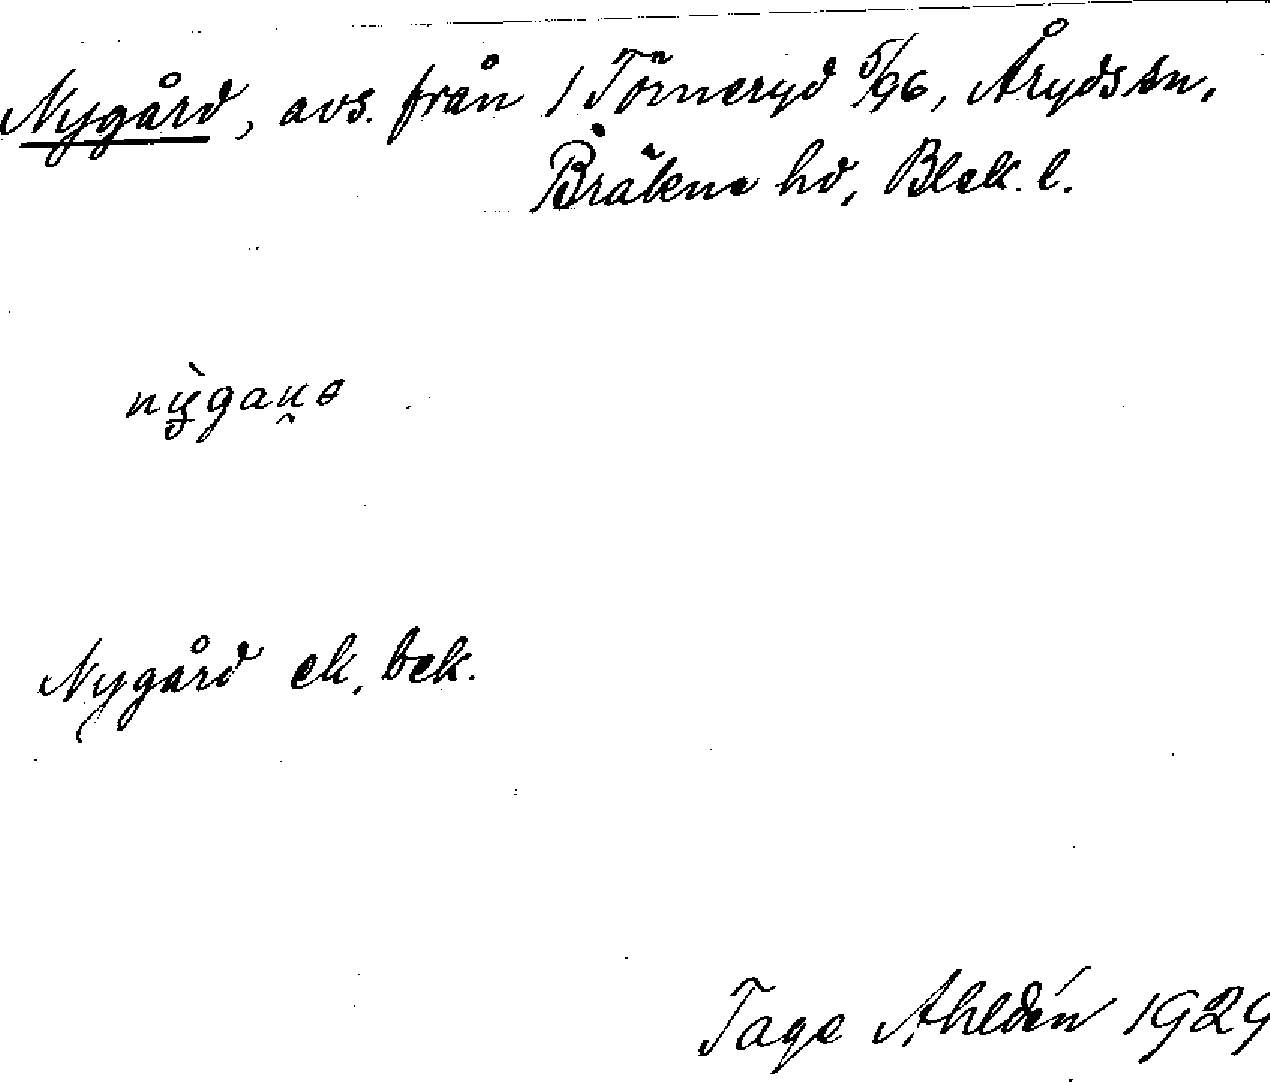 Nygård, avs. från 1 Törneryd 5/96, Åryds sn,
Bräkne hd, Blek. l.
Nygård ek. bek.
Tage Ahldén 1929